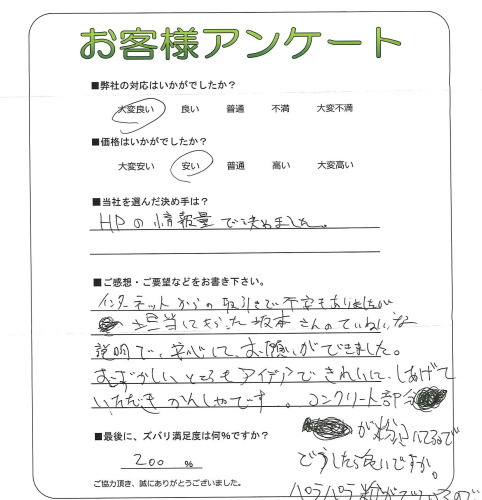 お客様アンケート
■弊社の対応はいかがでしたか?
大変良い 良い 普通 不満 大変不満
■価格はいかがでしたか?
大変安い 安い 普通 高い 大変高い
■当社を選んだ決め手は?
HPの情報量で決めました。
■ご感想・ご要望などをお書き下さい。
インターネットからの取引きで不安もありましたが
担当してもらった坂本さんのていねいな
説明で、安心して、お願いができました。
むずかしいところもアイデアできれいに、しあげて
いただき かんしゃです。コンクリート部分
が粉
■最後に、ズバリ満足度は何%ですか?
200 %
どうしたら良いですか。
ご協力頂き、誠にありがとうございました。
パラパラ粉が